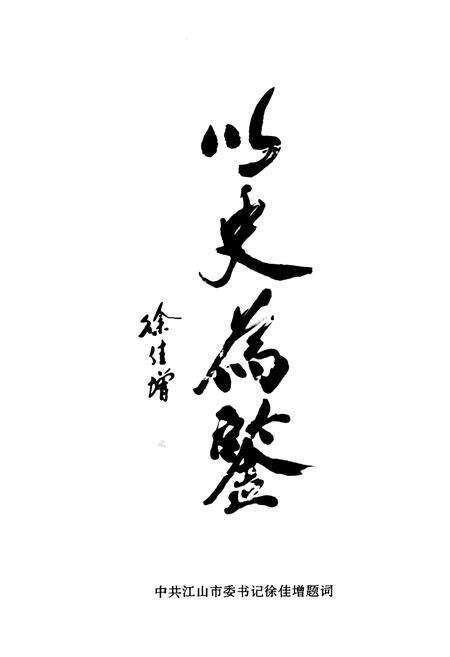 以史為鑒
徐佳增
中共江山市委书记徐佳增题词